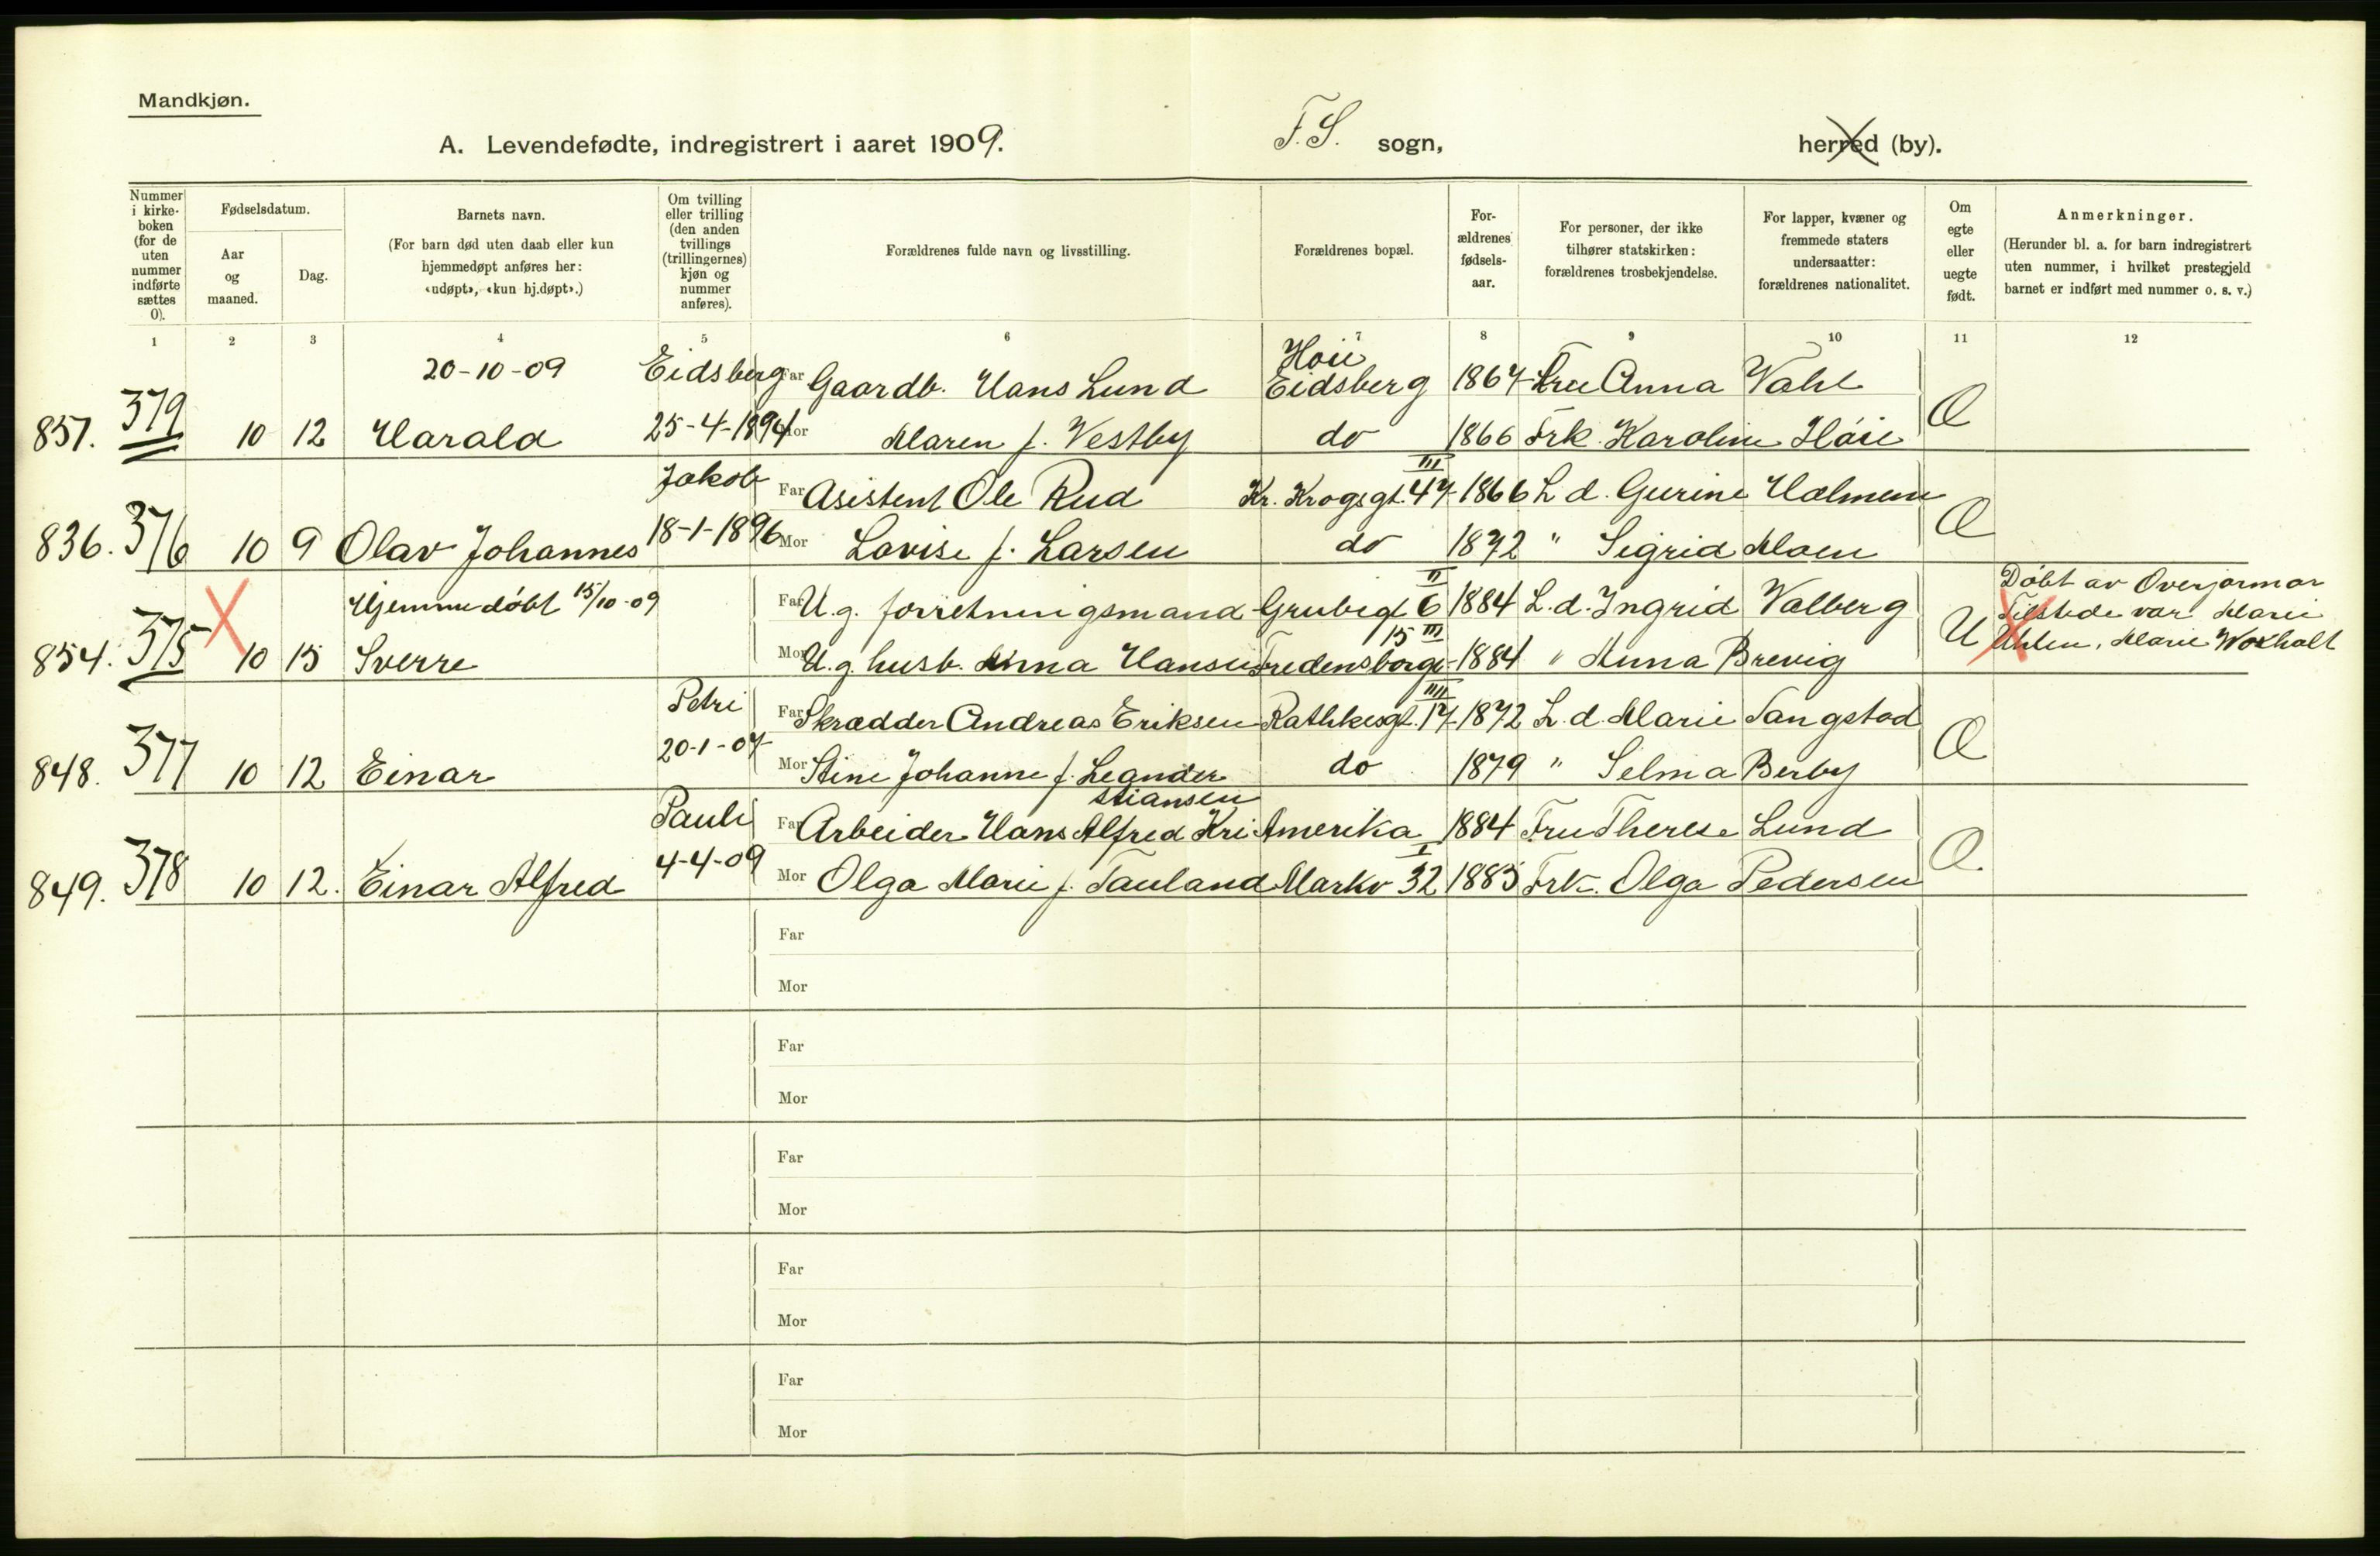 Mandkjøn.
A. Levendefødte, indregistrert i aaret 1909. F. S. sogn, herred (by).
Nummer i kirke-boken (for de uten nummer indførte sættes 0).
Fødselsdatum.
Aar og maaned.
Dag.
Barnets navn.
(For barn død uten daab eller kun hjemmedøpt anføres her: «udøpt», «kun hj.døpt».)
Om tvilling eller trilling (den anden tvillings (trillingernes) kjøn og nummer anføres).
Forældrenes fulde navn og livsstilling.
Forældrenes bopæl.
For-ældrenes fødsels-aar.
For personer, der ikke tilhører statskirken: forældrenes trosbekjendelse.
For lapper, kvæner og fremmede staters undersaatter: forældrenes nationalitet.
Om egte eller uegte født.
Anmerkninger.
(Herunder bl. a. for barn indregistrert uten nummer, i hvilket prestegjeld barnet er indført med nummer o. s. v.)
1 2 3 4 5 6 7 8 9 10 11 12
20-10-09 Eidsberg Far Gaardb. Hans Lund Höie Eidsberg 1867 Fru Anna Vahl
857. 379 10 12 Harald 25-4-1894 Mor Maren f. Vestby do 1866 Frk. Karoline Höie Æ
Jakob Far Asistent Ole Rud Kr. Krogsgt. 47 III 1866 L. d. Gurine Holmen
836. 376 10 9 Olav Johannes 18-1-1896 Mor Lovise f. Larsen do 1872 " Sigrid Moen Æ
Hjemmedöbt 15/10-09 Far U. g. forretningsmand Grubegt 6 II 1884 L. d. Ingrid Valberg Döbt av Overjormor
854. 375 10 15 Sverre Mor U. g. husb. Anna Hansen Fredensborgv. 15 III 1884 " Anna Brevig U Tilstede var Marie
, Marie Woxholt
Petri Far Skrædder Andreas Eriksen Rathkesgt. 17 IIII 1872 L. d. Marie Tangstad
848. 377 10 12 Einar 20-1-07 Mor Stine Johanne f. Leander do 1879 " Selma Berby Æ
Pauli Far Arbeider Hans Alfred Kristiansen Amerika 1884 Fru Therese Lund
849. 378 10 12. Einar Alfred 4-4-09 Mor Olga Marie f. Tauland Markv 32 I 1885 Frk. Olga Pedersen Æ
Far
Mor
Far
Mor
Far
Mor
Far
Mor
Far
Mor